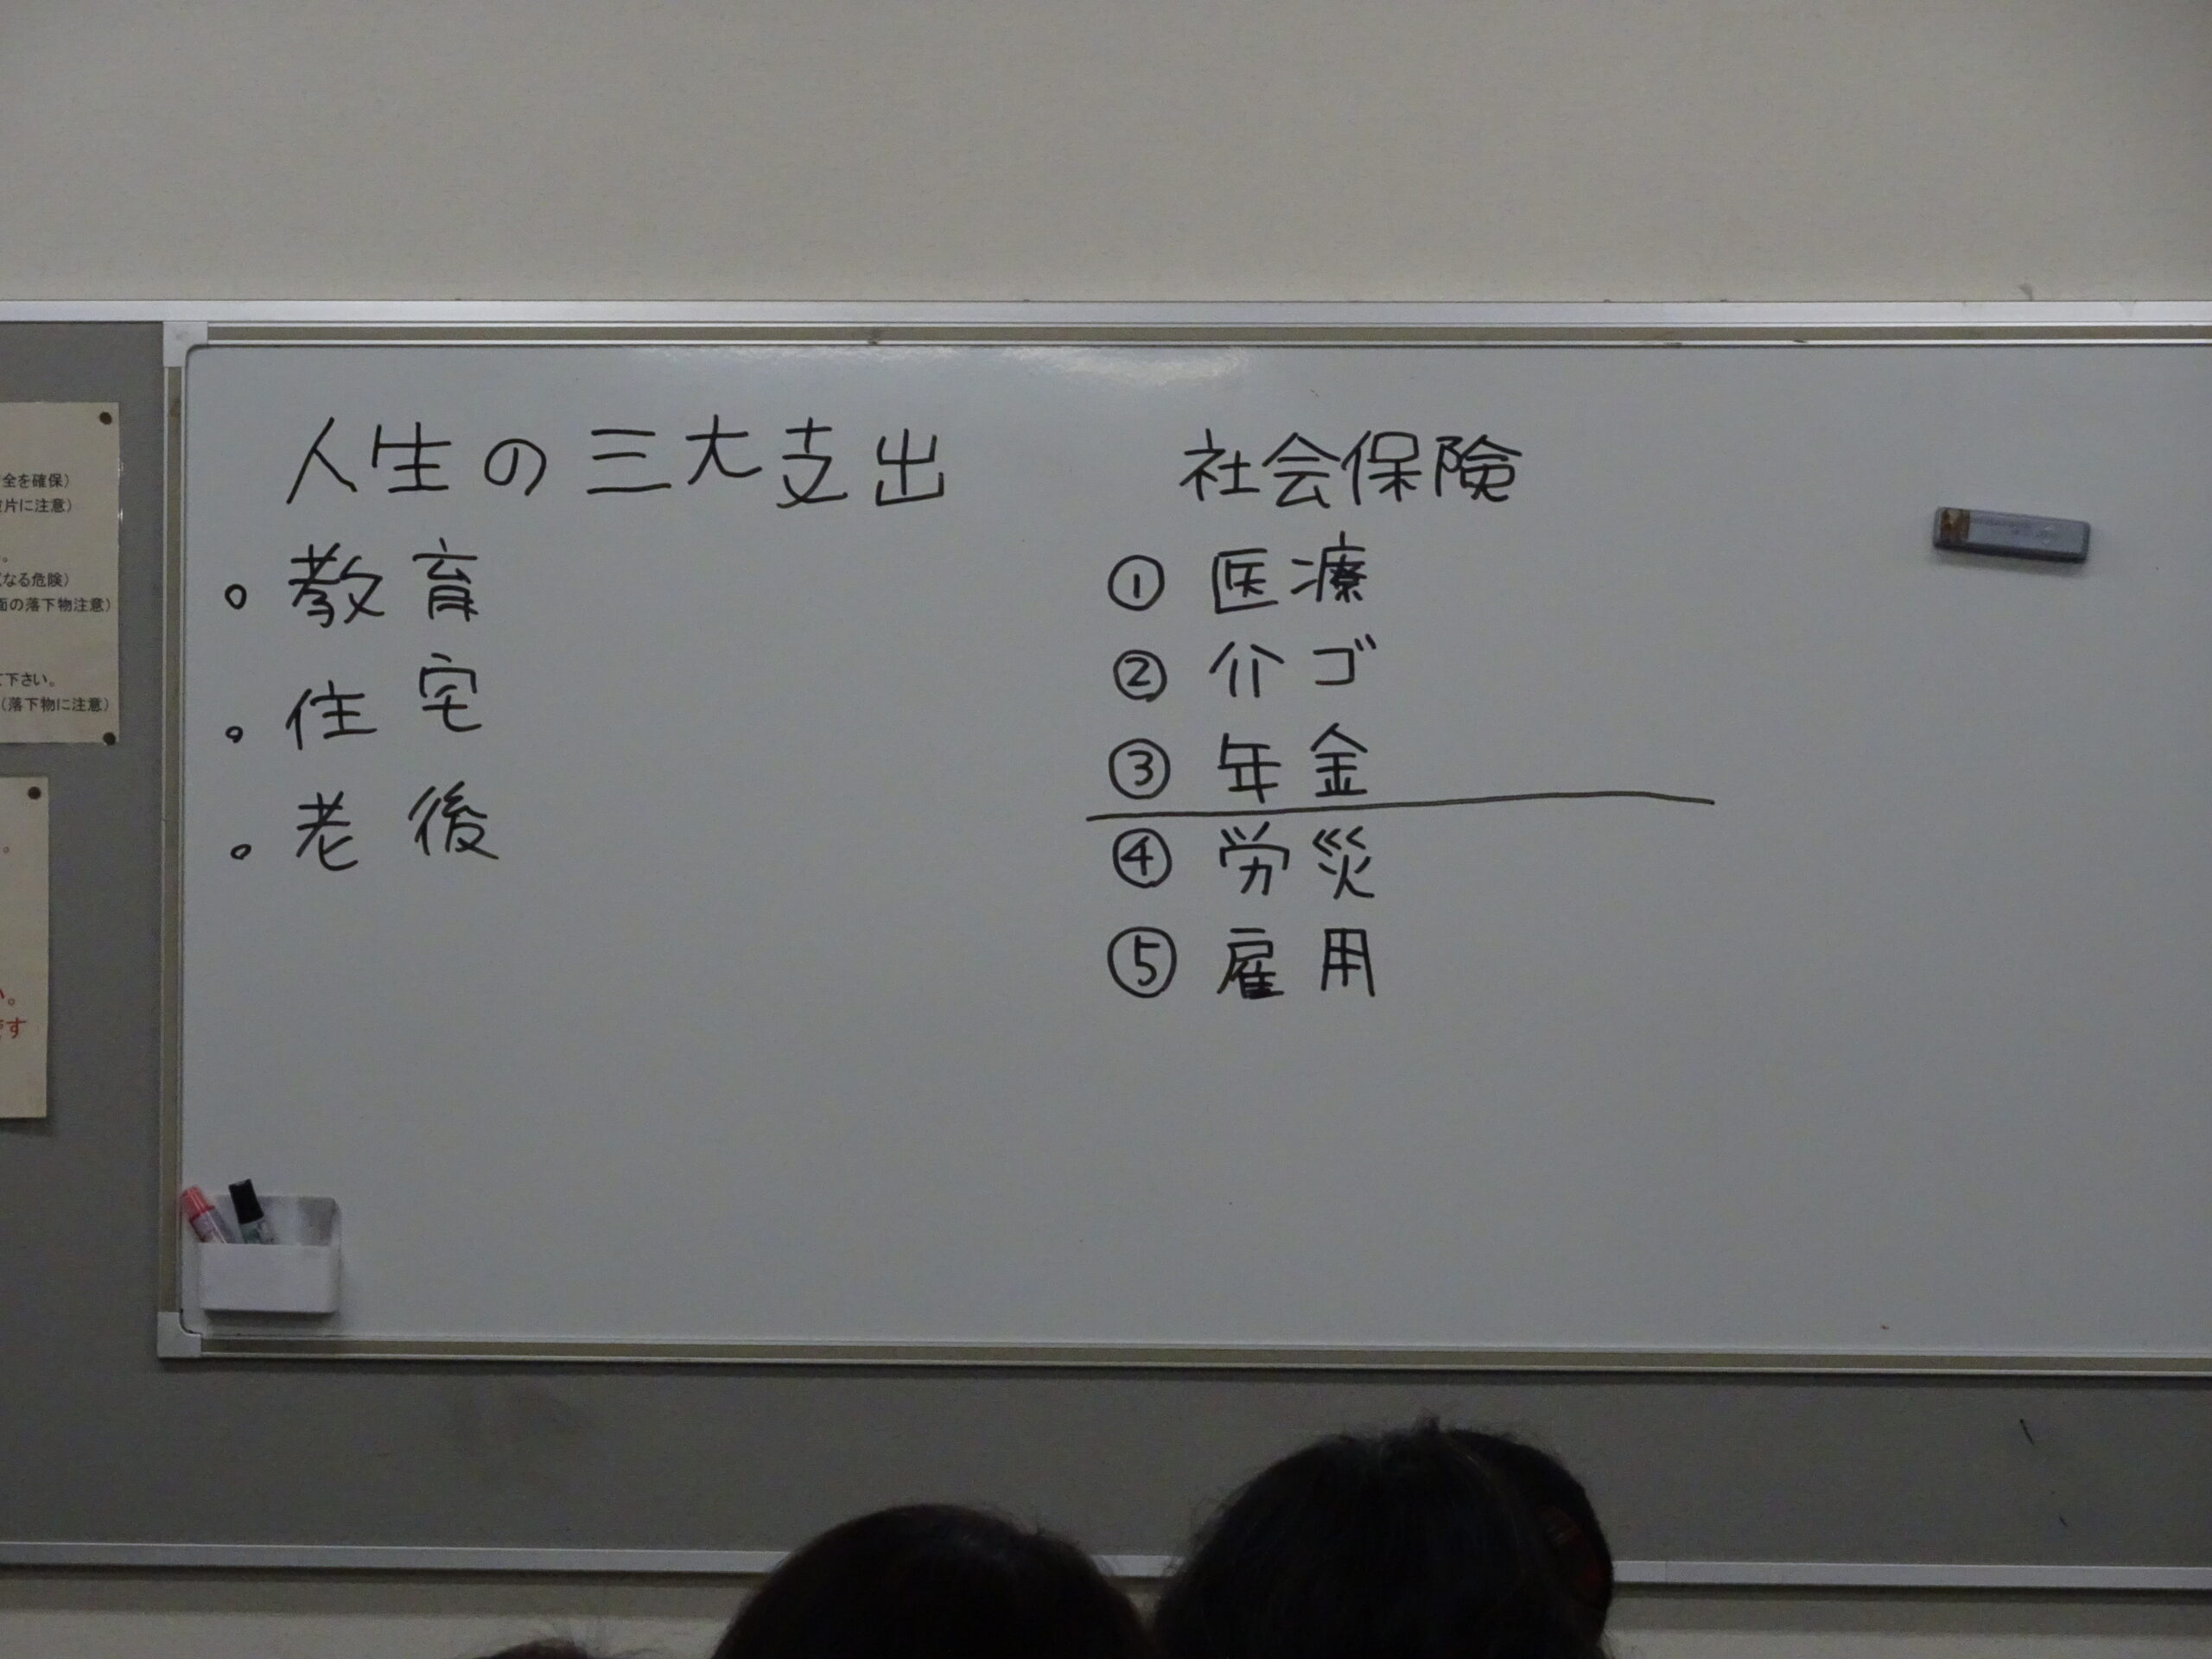 人生の三大支出
。教育
。住宅
。老後
社会保険
① 医療
② 介ゴ
③ 年金
④ 労災
⑤ 雇用
全を確保）
片に注意）
。
なる危険）
面の落下物注意）
て下さい。
（落下物に注意）
。
い。
です